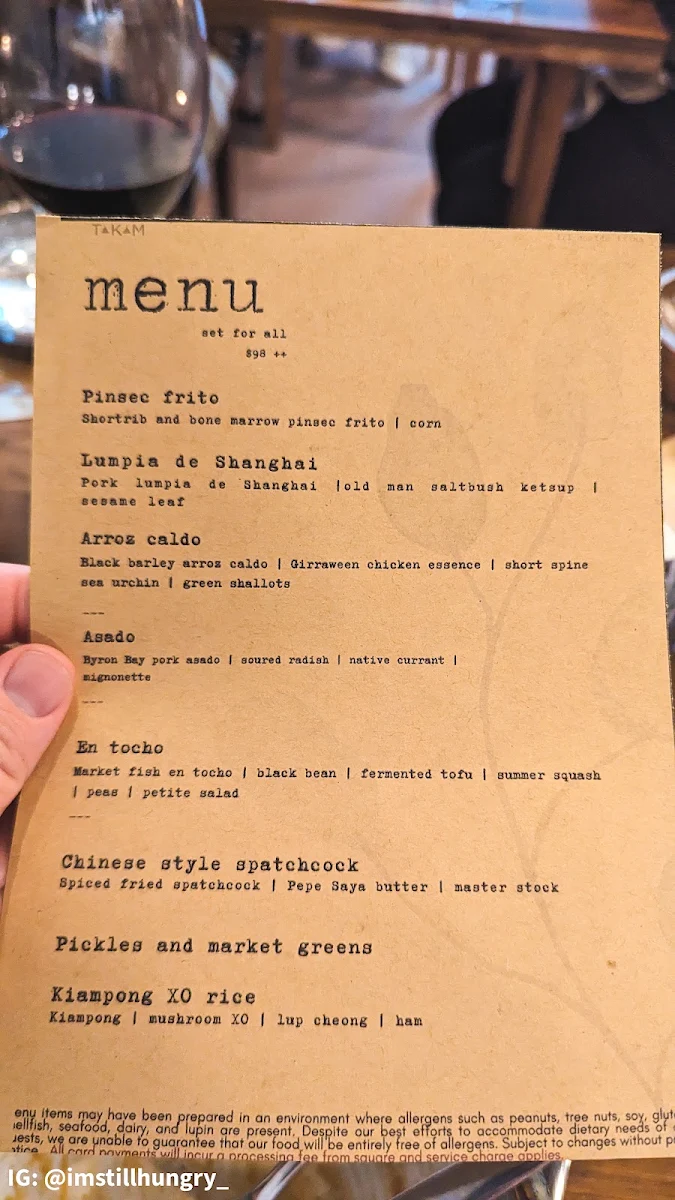 TAKAM
menu
set for all
$98 ++
Pinsec frito
Shortrib and bone marrow pinsec frito | corn
Lumpia de Shanghai
Pork lumpia de Shanghai |old man saltbush ketsup |
sesame leaf
Arroz caldo
Black barley arroz caldo | Girraween chicken essence | short spine
sea urchin | green shallots
---
Asado
Byron Bay pork asado | soured radish | native currant |
mignonette
---
En tocho
Market fish en tocho | black bean | fermented tofu | summer squash
| peas | petite salad
---
Chinese style spatchcock
Spiced fried spatchcock | Pepe Saya butter | master stock
Pickles and market greens
Kiampong XO rice
Kiampong | mushroom XO | lup cheong | ham
enu items may have been prepared in an environment where allergens such as peanuts, tree nuts, soy, glut
ellfish, seafood, dairy, and lupin are present. Despite our best efforts to accommodate dietary needs of
uests, we are unable to guarantee that our food will be entirely free of allergens. Subject to changes without p
otice. All card payments will incur a processing fee from square and service charge applies.
IG: @imstillhungry_